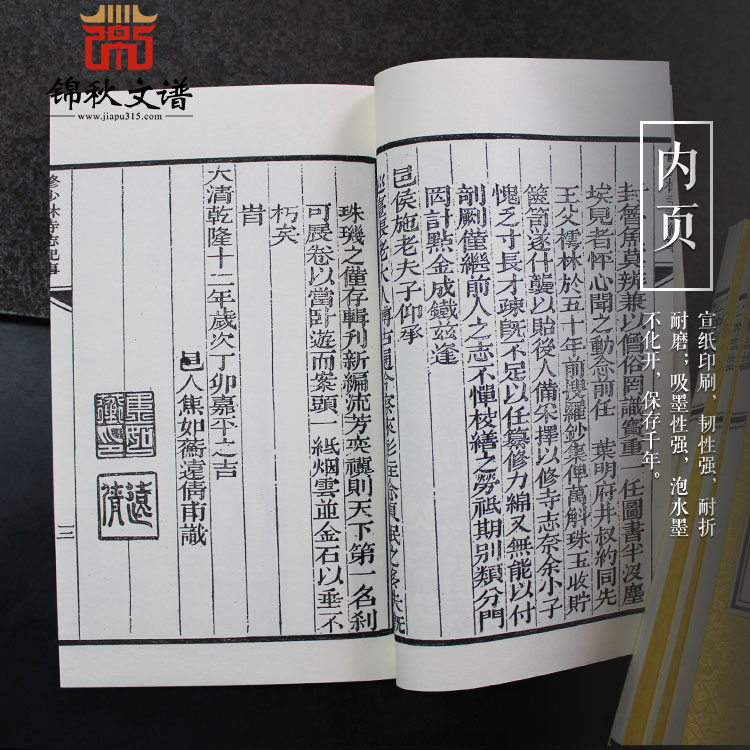 锦秋文谱
www.jiapu315.com
内页
宣纸印刷，韧性强，耐折
耐磨；吸墨性强，泡水墨
不化开，保存千年。
封魯魚真辨兼以僧俗罔識寶重一任圖書半沒塵
埃見者怦心聞之動念前任　葉明府井叔約同先
王父儒林於五十年前搜羅鈔集俾萬斛珠玉收貯
篋笥遂什襲以貽後人備采擇以修寺志奈余小子
愧乏寸長才疎旣不足以任纂修力綿又無能以付
剞劂僅繼前人之志不憚校繕之勞祗期別類分門
罔計點金成鐵茲逢
邑侯施老夫子仰承
珠璣之僅存輯刊新編流芳奕禩則天下第一名刹
可展卷以當卧遊而案頭一紙烟雲並金石以垂不
朽矣
旹
大清乾隆十二年歲次丁卯嘉平之吉
邑人焦如蘅遠倩甫識
焦如蘅印
遠倩
修少林寺志紀事
三